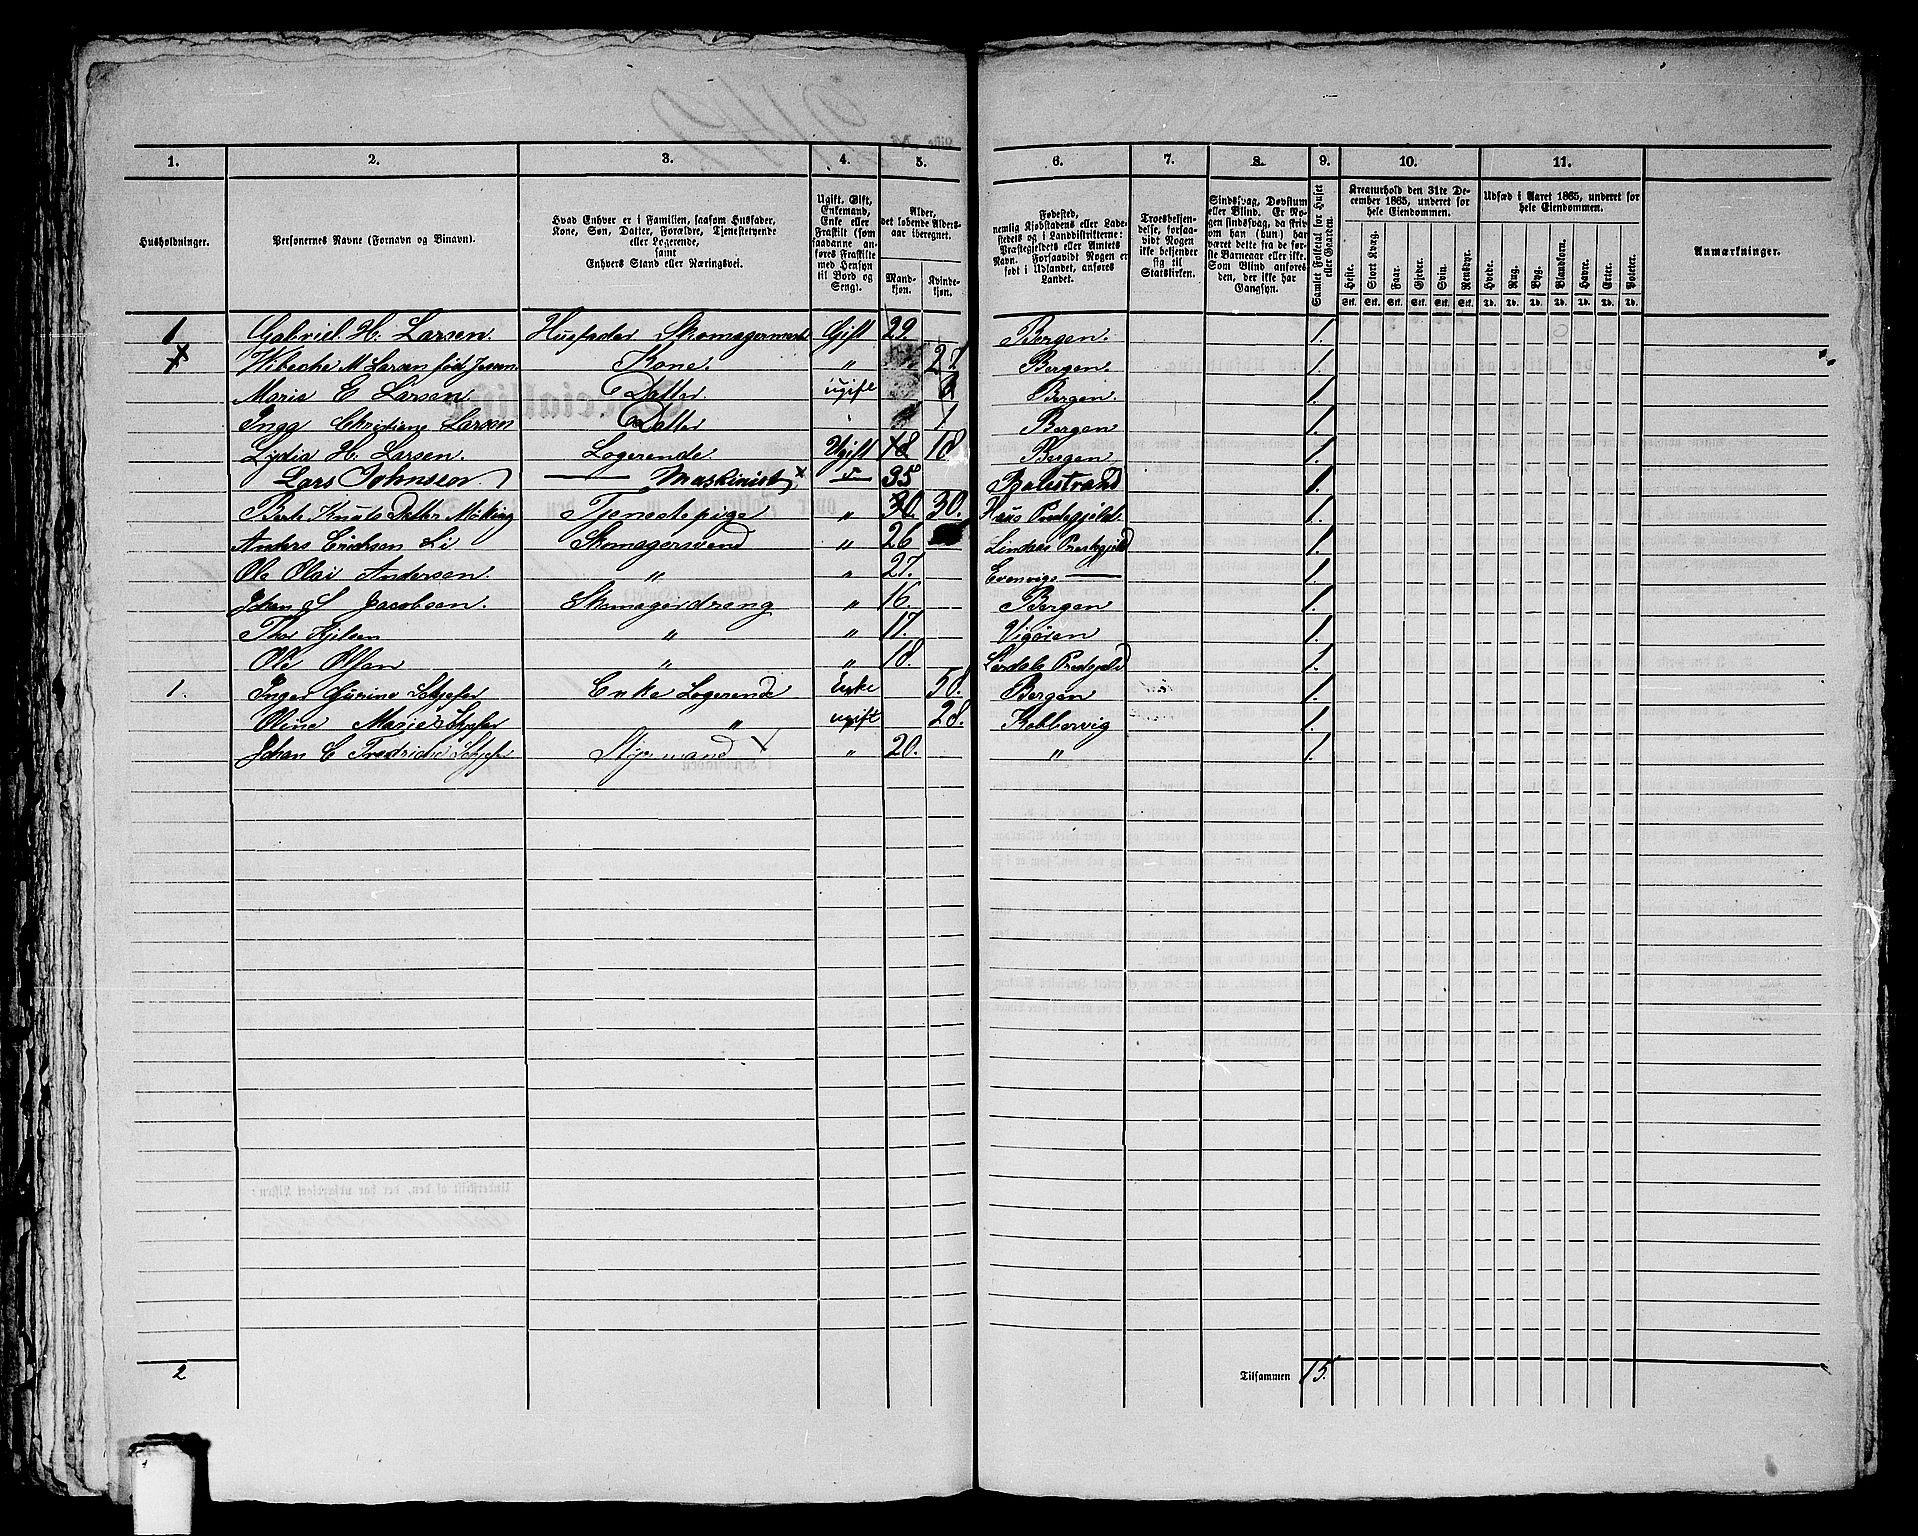 1. 2. 3. 4. 5. 6. 7. 8. 9. 10. 11.
Husholdninger. Personernes Navne (Fornavn og Binavn). Hvad Enhver er i Familien, saasom Husfader, Kone, Søn, Datter, Forældre, Tjenestetyende eller Logerende, samt Enhvers Stand eller Næringsvei. Ugift, Gift, Enkemand, Enke eller Fraskilt (som saadanne anføres Fraskilte med Hensyn til Bord og Seng). Alder, det løbende Aldersaar iberegnet. Mandkjøn. Kvindekjøn. Fødested, nemlig Kjøbstadens eller Ladestedets og i Landdistrikterne: Præstegjeldets eller Amtets Navn. Forsaavidt Nogen er født i Udlandet, anføres Landet. Troesbekjendelse, forsaavidt Nogen ikke bekjender sig til Statskirken. Sindssvag, Døvstum eller Blind. Er Nogen sindssvag, da skrives om han (hun) har været dette fra de første Barneaar eller ikke. Som Blind anføres den, der ikke har Gangsyn. Samlet Folketal for Huset eller Gaarden. Kreaturhold den 31te December 1865, underet for hele Eiendommen. Heste. Stort Kvæg. Faar. Gjeder. Svin. Rensdyr. Udsæd i Aaret 1865, underet for hele Eiendommen. Hvede. Rug. Byg. Blandkorn. Havre. Erter. Poteter. Anmærkninger.
1 Gabriel H. Larsen. Husfader Skomagermest Gift 29. Bergen. 1.
x Wibeche M Larsen fød Jessen. Kone. " 27 Bergen. 1.
Maria E. Larsen Datter ugift Bergen. 1.
Inga Christiane Larsen Datter 1 Bergen 1.
Lydia H. Larsen. Logerende Ugift 18 18 Bergen 1.
Lars Johnsen — Maskinist x 35 Balestrand 1.
Berte Knuts Datter Tjenestepige " 30. 30. Haus Prestegjeld. 1.
Anders Erichsen Li Skomagersvend " 26 Lindaas Prestegjeld 1.
Ole Olai Andersen. " " 27. Evenvigs — 1.
Johan S Jacobsen. Skomagerdreng " 16. Bergen 1.
" " 17. Vigøren 1.
Ole Olsen " " 18. 1.
1. Inger Enke Logerende Enke 58. Bergen 1.
Oline Marie " ugift 28. Kobbervig 1.
Johan C Fredrich Styrmand " 20. " 1.
2 Tilsammen 15.